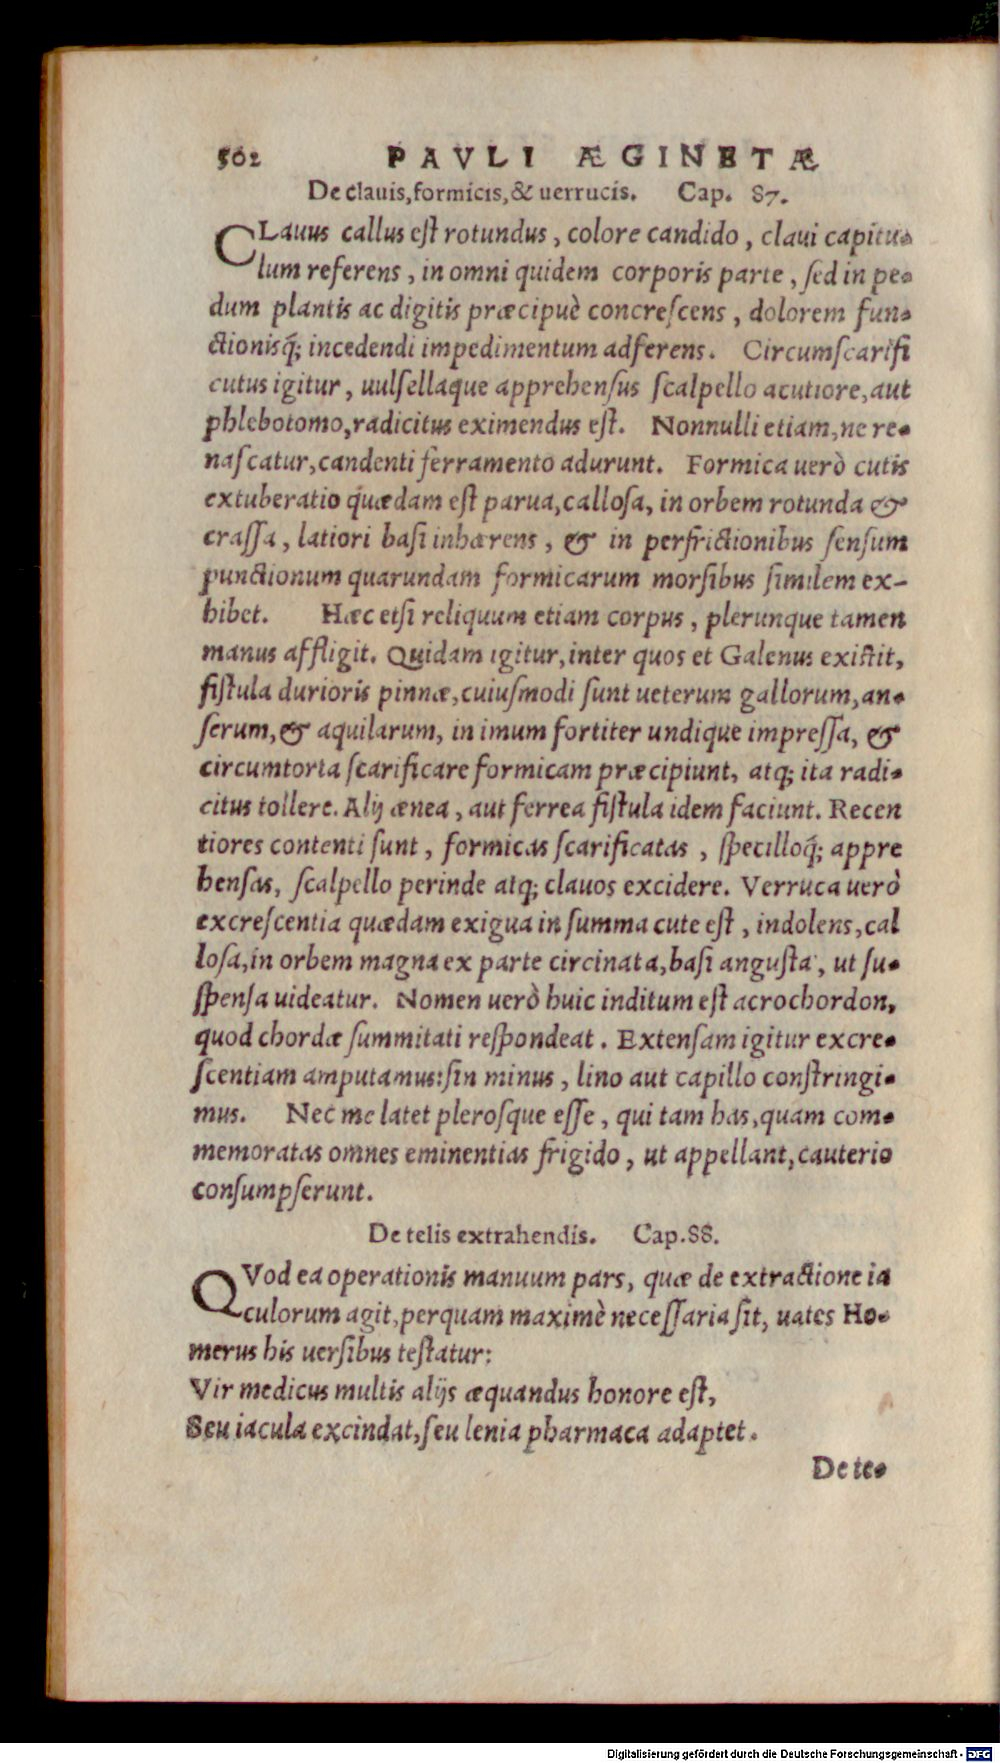 502 PAVLI ÆGINETÆ
De clauis, formicis, & uerrucis. Cap. 87.
CLauus callus est rotundus, colore candido, claui capitu-
lum referens, in omni quidem corporis parte, sed in pe-
dum plantis ac digitis præcipuè concrescens, dolorem fun-
ctionisq́; incedendi impedimentum adferens. Circumscarifi
cutus igitur, uulsellaque apprehensus scalpello acutiore, aut
phlebotomo, radicitus eximendus est. Nonnulli etiam, ne re-
nascatur, candenti ferramento adurunt. Formica uerò cutis
extuberatio quædam est parua, callosa, in orbem rotunda &
crassa, latiori basi inhærens, & in perfrictionibus sensum
punctionum quarundam formicarum morsibus similem ex-
hibet. Hæc etsi reliquum etiam corpus, plerunque tamen
manus affligit. Quidam igitur, inter quos et Galenus existit,
fistula durioris pinnæ, cuiusmodi sunt ueterum gallorum, an-
serum, & aquilarum, in imum fortiter undique impressa, &
circumtorta scarificare formicam præcipiunt, atq; ita radi-
citus tollere. Alij ænea, aut ferrea fistula idem faciunt. Recen
tiores contenti sunt, formicas scarificatas, specilloq́; appre
hensas, scalpello perinde atq; clauos excidere. Verruca uerò
excrescentia quædam exigua in summa cute est, indolens, cal
losa, in orbem magna ex parte circinata, basi angusta, ut su-
spensa uideatur. Nomen uerò huic inditum est acrochordon,
quod chordæ summitati respondeat. Extensam igitur excre-
scentiam amputamus: sin minus, lino aut capillo constringi-
mus. Nec me latet plerosque esse, qui tam has, quam com-
memoratas omnes eminentias frigido, ut appellant, cauterio
consumpserunt.
De telis extrahendis. Cap. 88.
QVod ea operationis manuum pars, quæ de extractione ia
culorum agit, perquam maximè necessaria sit, uates Ho-
merus his uersibus testatur:
Vir medicus multis alijs æquandus honore est,
Seu iacula excindat, seu lenia pharmaca adaptet.
De te-
Digitalisierung gefördert durch die Deutsche Forschungsgemeinschaft - DFG